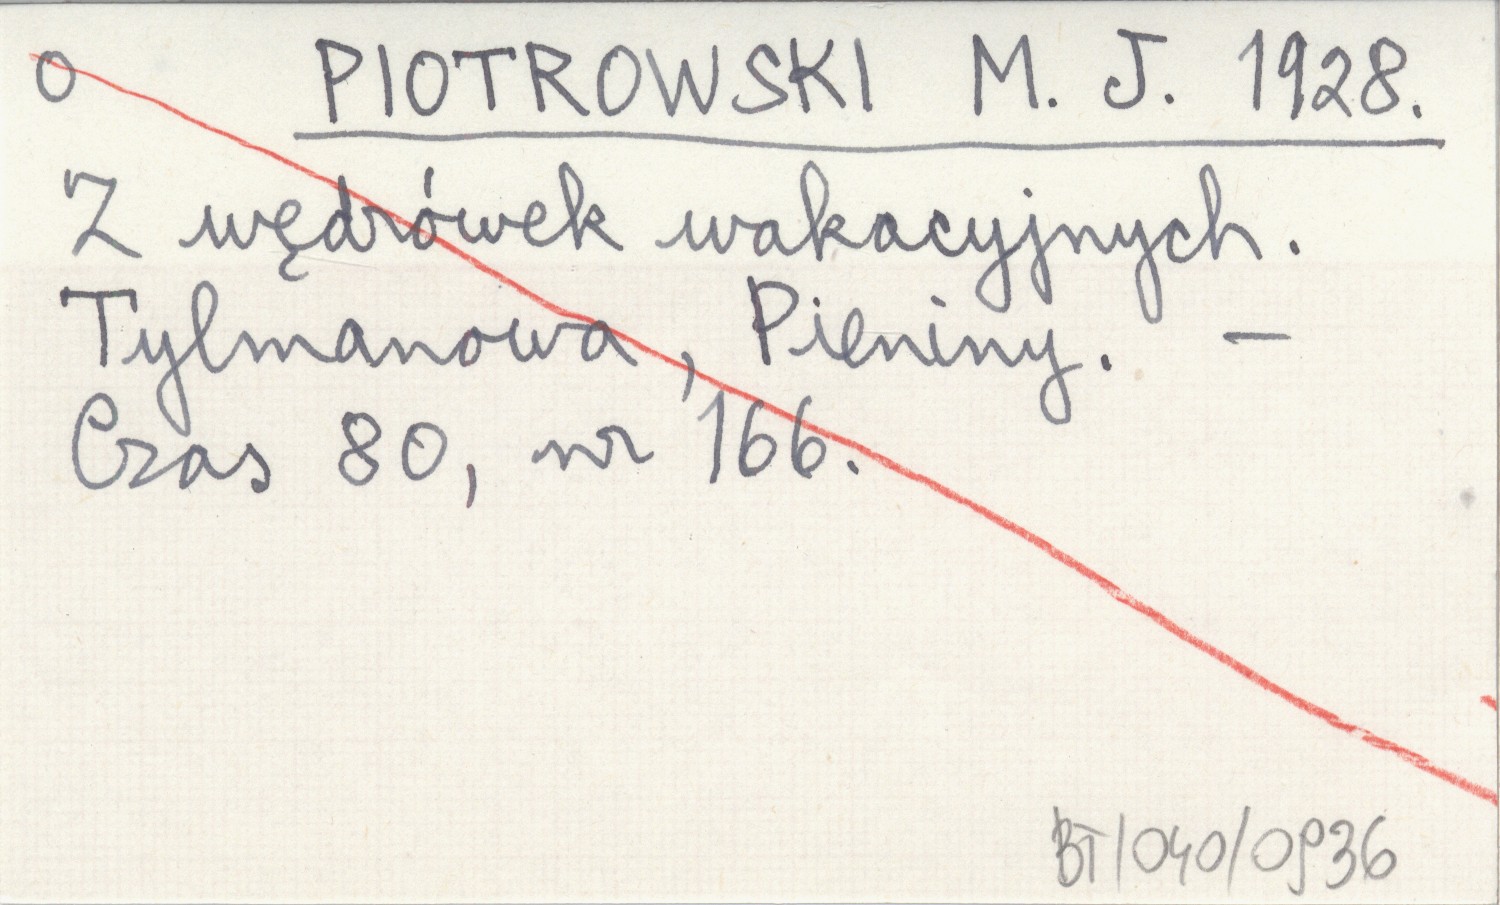 o PIOTROWSKI M. J. 1928.
Z wędrówek wakacyjnych.
Tylmanowa, Pieniny. —
Czas 80, nr 166.
BT/040/0936